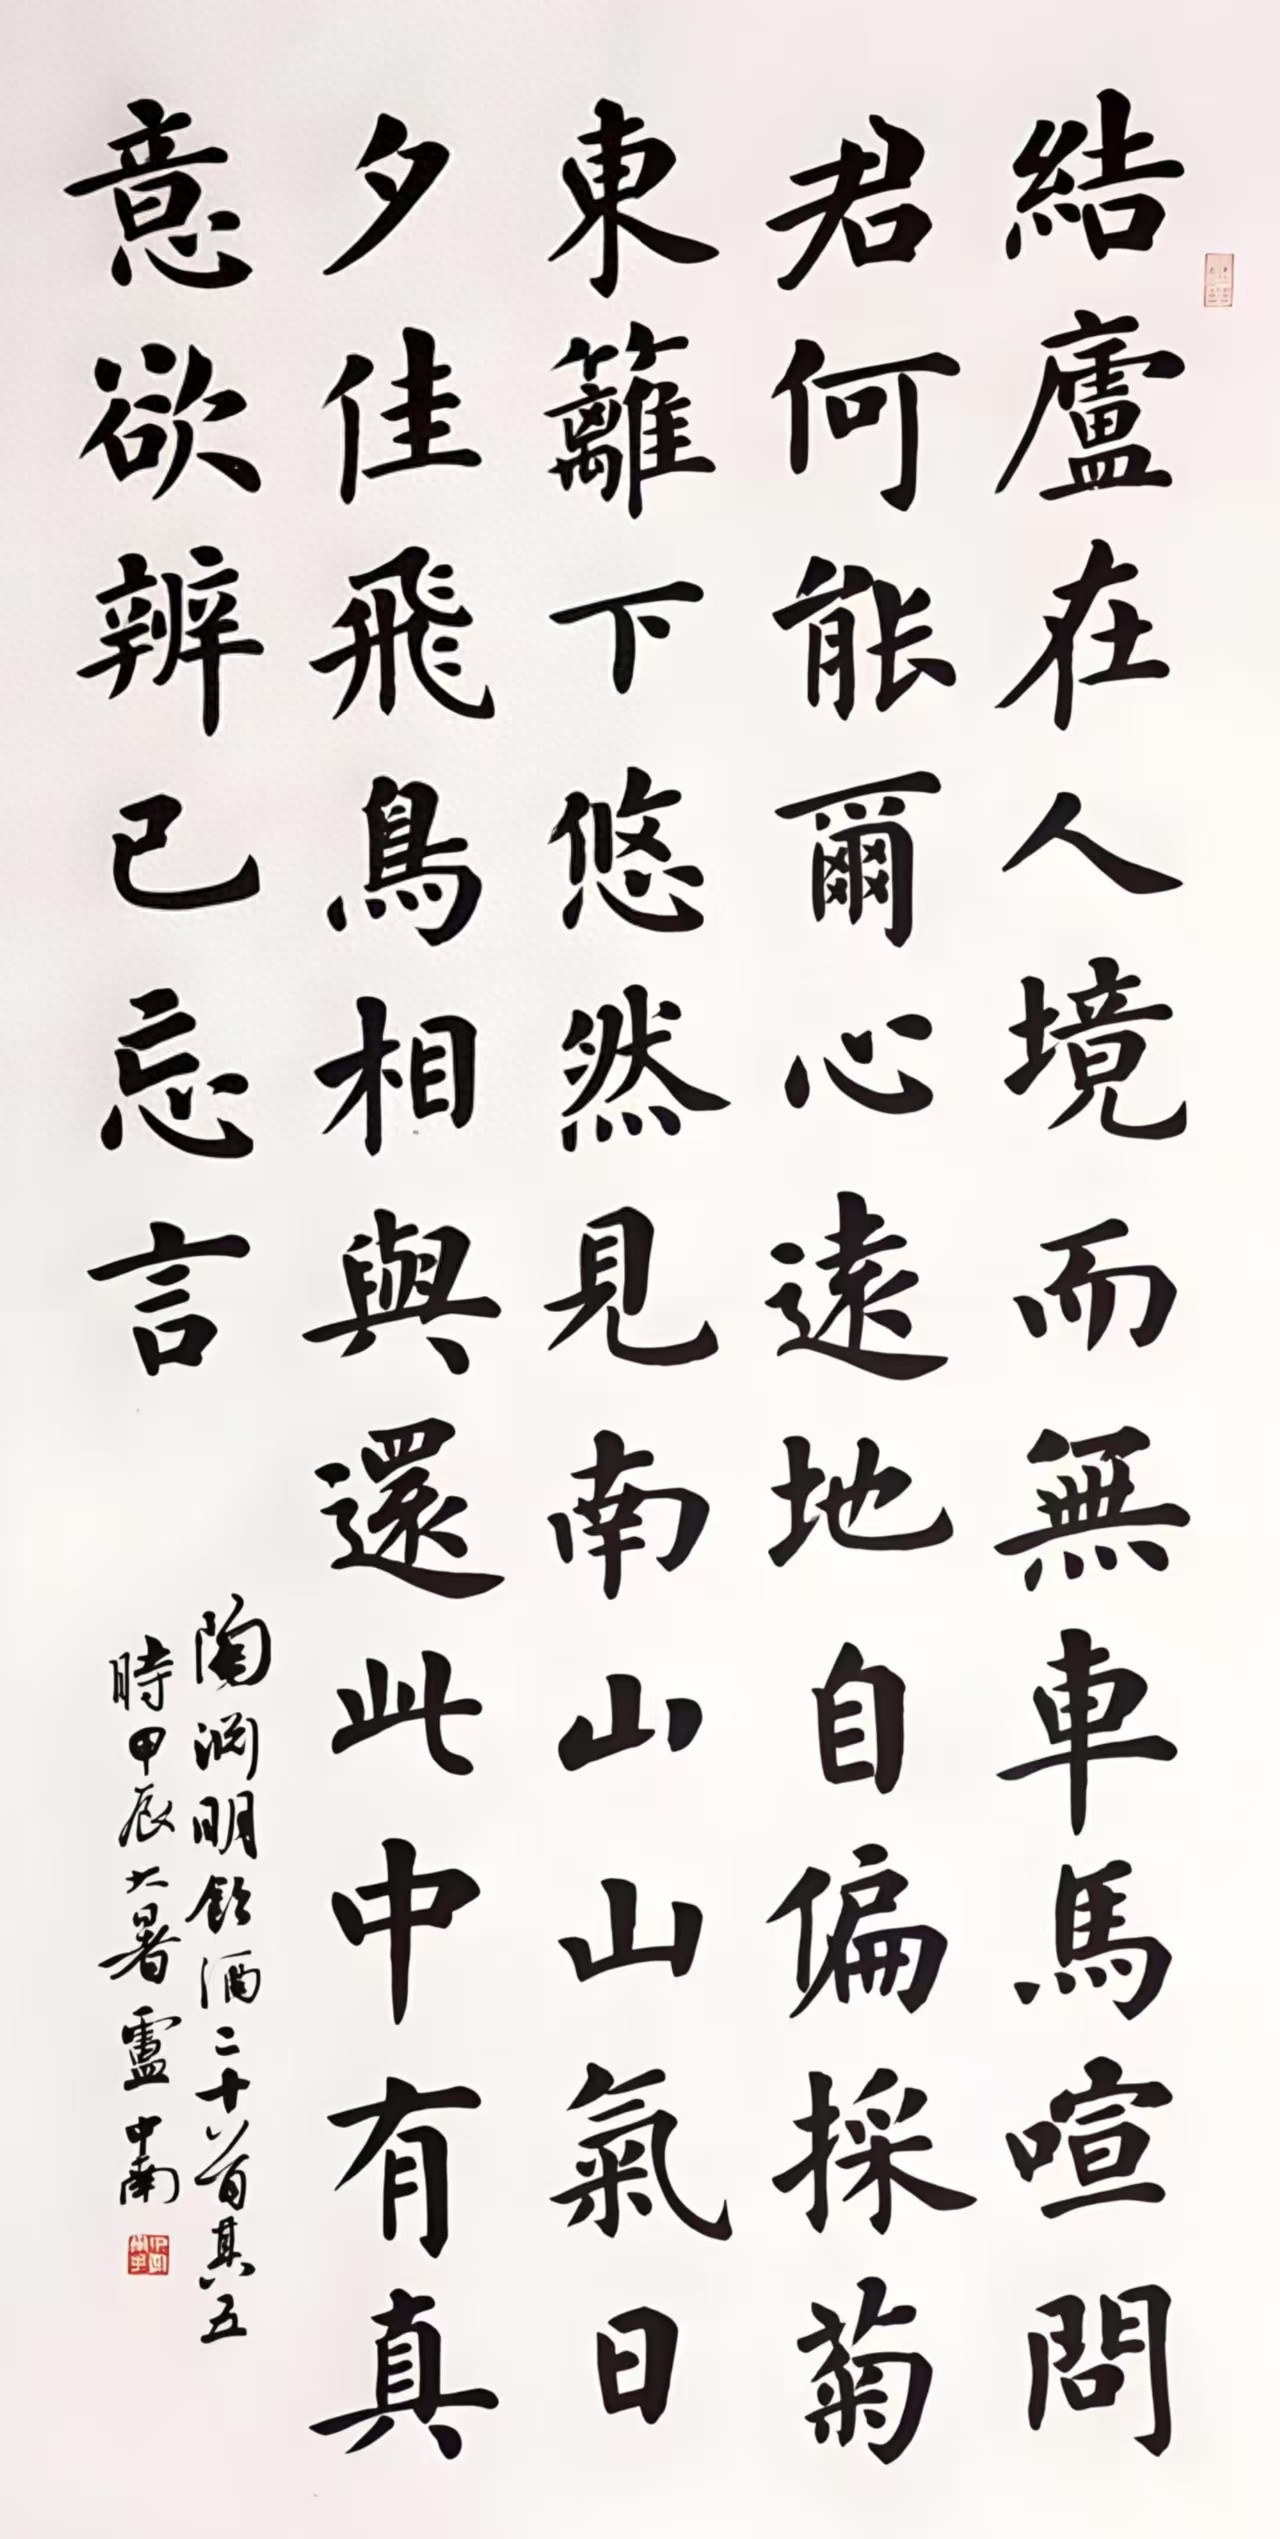 結廬在人境而無車馬喧問
君何能爾心遠地自偏採菊
東籬下悠然見南山山氣日
夕佳飛鳥相與還此中有真
意欲辨已忘言
陶淵明飲酒二十首其五
時甲辰大暑盧中南